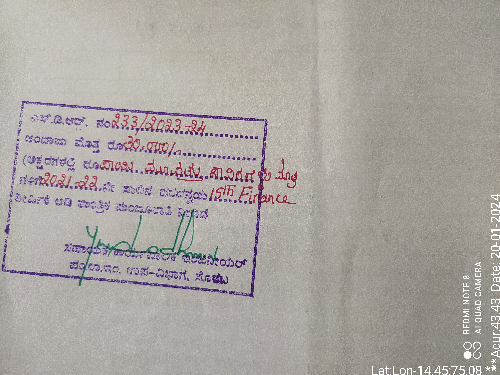 ಎಸ್.ಡಿ.ಆರ್. ನಂ 233/2023-24
ಅಂದಾಜು ಮೊತ್ತ ರೂ 30,000/-
(ಅಕ್ಷರಗಳಲ್ಲಿ ರೂಪಾಯಿ ಮೂವತ್ತು ಸಾವಿರಗಳು ಮಾತ್ರ
2021-22 ನೇ ಸಾಲಿನ 15th Finance
ಸಹಾಯಕ ಕಾರ್ಯಪಾಲಕ ಇಂಜಿನೀಯರ್
ಪಂ.ರಾ.ಇಂ. ಉಪ-ವಿಭಾಗ,
REDMI NOTE 8
AI QUAD CAMERA
Lat Lon-14.4575,08
**Acur 43.43 Date: 20-01-2024